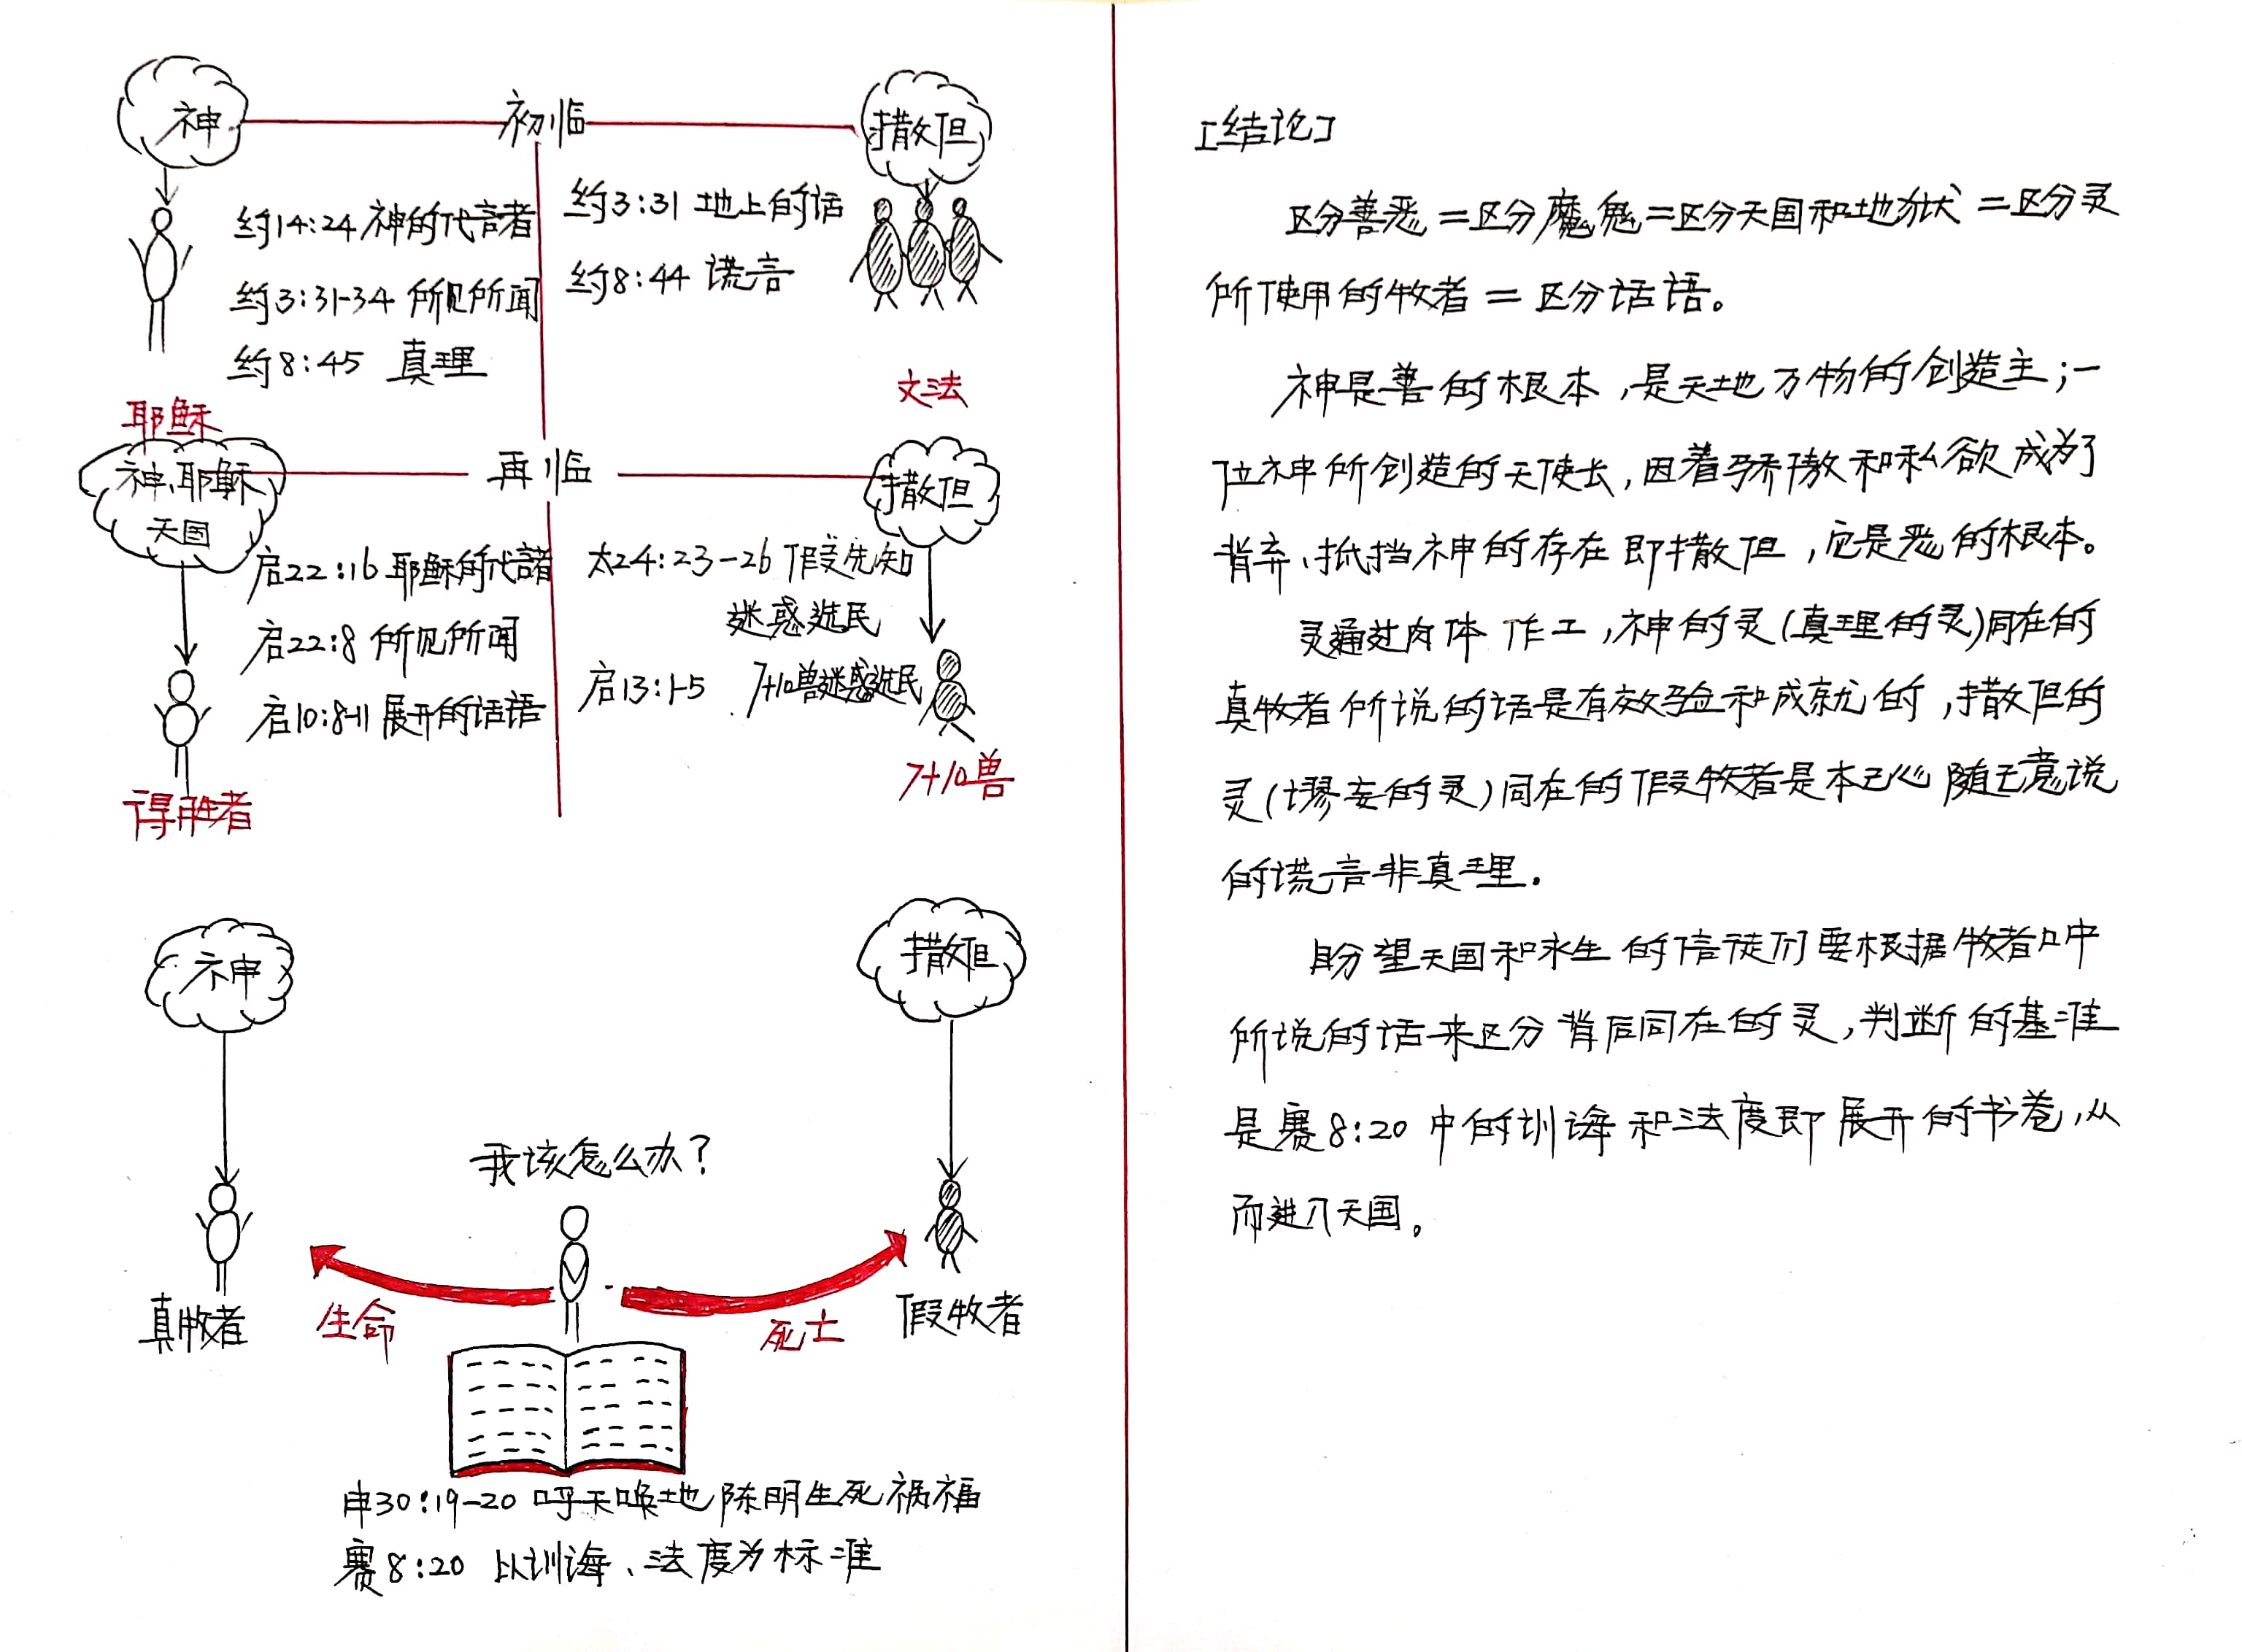 神
初临
撒但
约14:24 神的代言者
约3:31-34 所见所闻
约8:45 真理
耶稣
约3:31 地上的话
约8:44 谎言
文法
神、耶稣
天国
再临
撒但
启22:16 耶稣的代言者
启22:8 所见所闻
启10:8-11 展开的话语
得胜者
太24:23-26 假先知
迷惑选民
启13:1-5 7+10兽迷惑选民
7+10兽
神
撒但
我该怎么办?
真牧者
生命
死亡
假牧者
申30:19-20 呼天唤地 陈明生死祸福
赛8:20 以训诲、法度为标准
[结论]
区分善恶=区分魔鬼=区分天国和地狱=区分灵
所使用的牧者=区分话语。
神是善的根本,是天地万物的创造主;一
位神所创造的天使长,因着骄傲和私欲成为了
背弃、抵挡神的存在即撒但,它是恶的根本。
灵通过肉体作工,神的灵(真理的灵)同在的
真牧者所说的话是有效验和成就的,撒但的
灵(谬妄的灵)同在的假牧者是本己心随己意说
的谎言非真理.
盼望天国和永生的信徒们要根据牧者口中
所说的话来区分背后同在的灵,判断的基准
是赛8:20中的训诲和法度即展开的书卷,从
而进入天国。